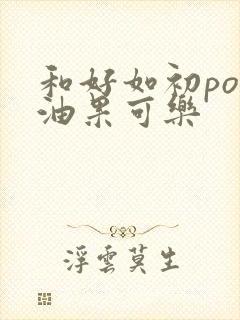 和好如初po
油果可樂
浮雲莫生